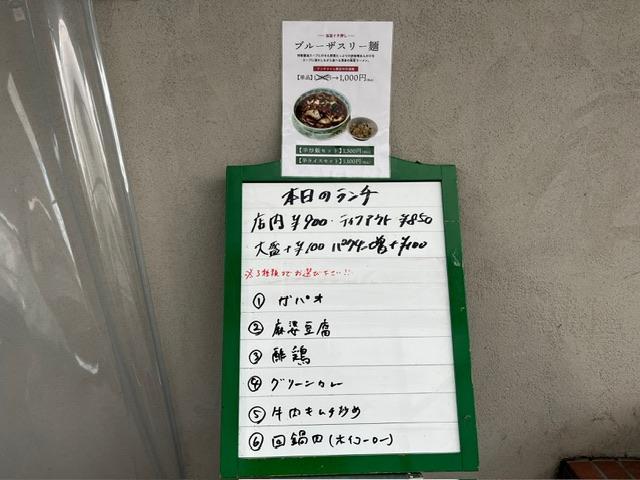 当店イチ押し
ブルーザスリー麺
【単品】→1,000円(税込)
【半炒飯セット】1,300円(税込)
【半ライスセット】1,100円(税込)
本日のランチ
店内 ¥900・テイクアウト ¥850
大盛+¥100 パクチー増+¥100
※3種類までお選び下さい!!
① ガパオ
② 麻婆豆腐
③ 酢鶏
④ グリーンカレー
⑤ 牛肉キムチ炒め
⑥ 回鍋肉(ホイコーロー)